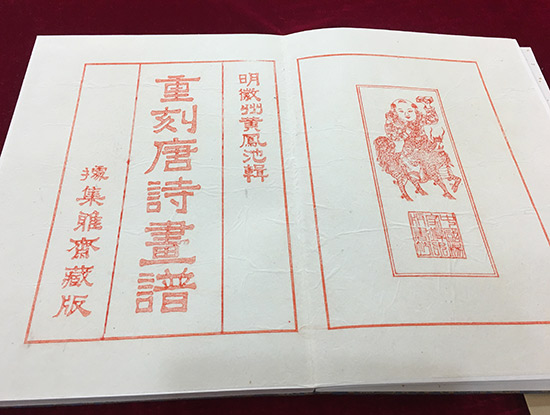 明徽州黄鳳池輯
重刻唐詩畫譜
據集雅齋藏版